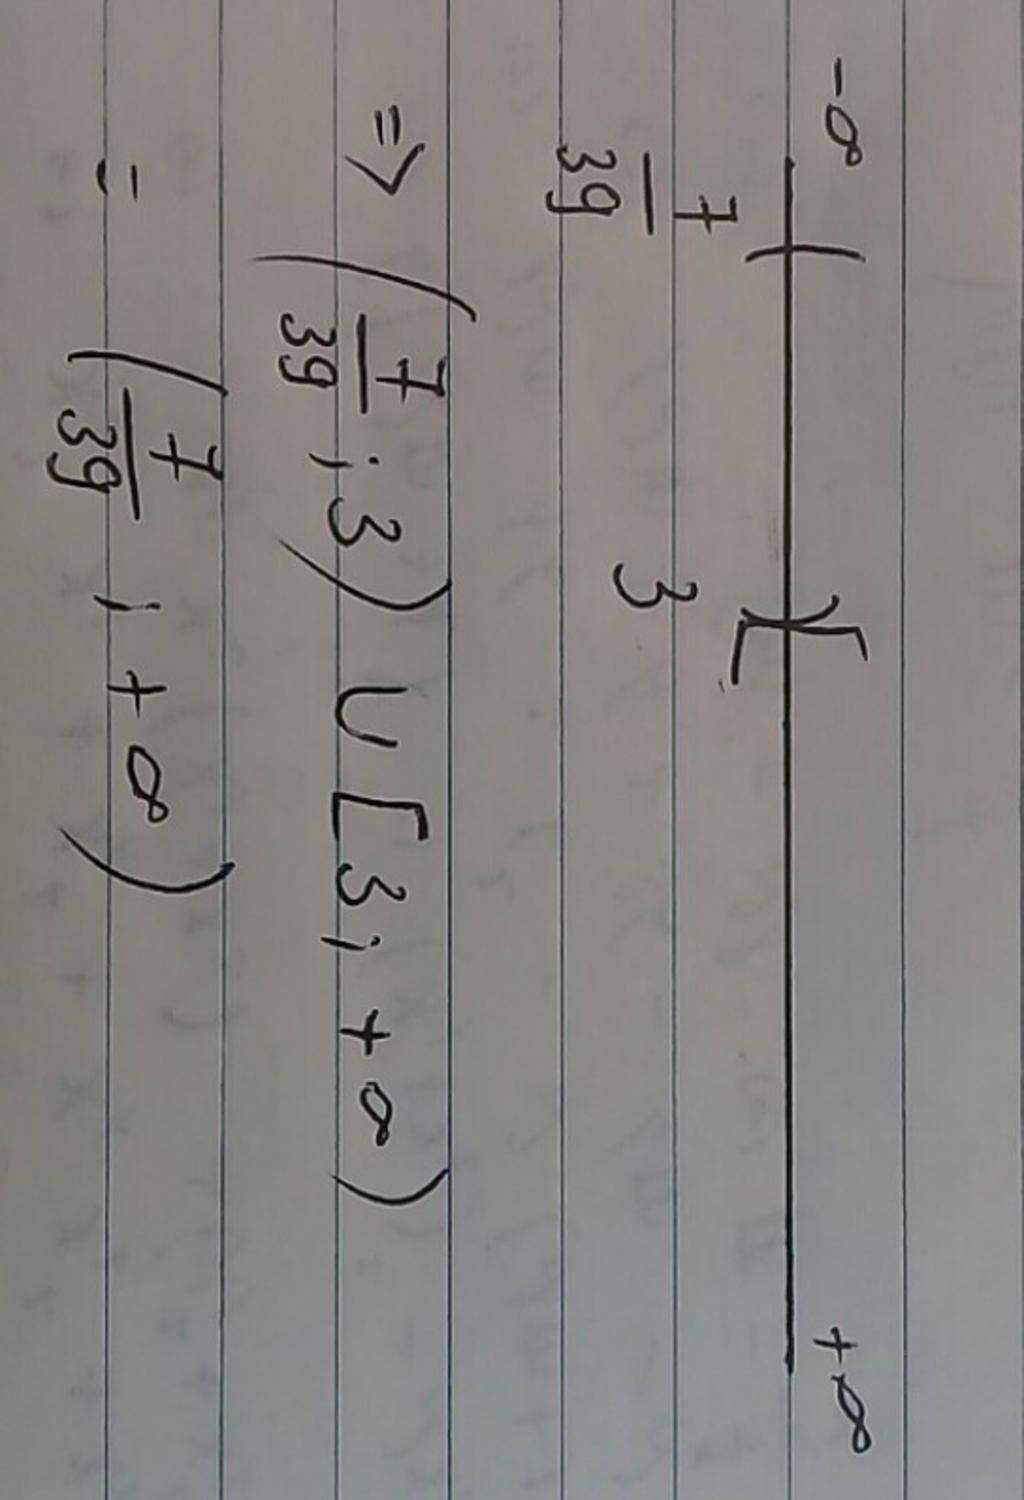 -∞ +∞
7/39 3
=> (7/39 ; 3) ∪ [3; +∞)
= (7/39 ; +∞)